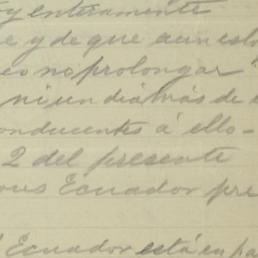 y enteramente
e y de que aun esto
no prolongar
ni un dia mas de
conducentes á ello-
2 del presente
ous Ecuador pre
Ecuador está en pa